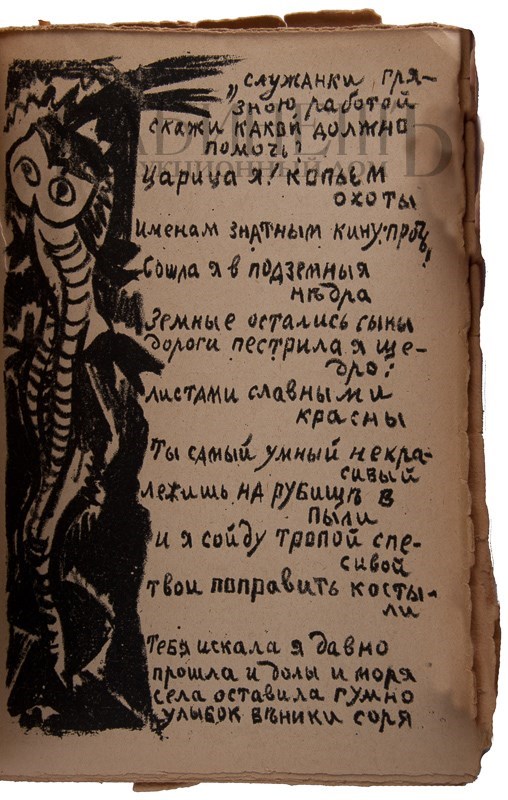 „служанки гря-
зною работой
скажи какой должно
помочь?
царица я! копьем
охоты
именам знатным кину: прочь“
Сошла я в подземныя
нѣдра
Земные остались сыны
дороги пестрила я ще-
дро:
листами славными
красны
Ты самый умный некра-
сивый
лежишь на рубищѣ в
пыли
и я сойду тропой спе-
сивой
твои поправить косты-
ли
Тебя искала я давно
прошла и долы и моря
села оставила гумно
улыбок вѣники соря